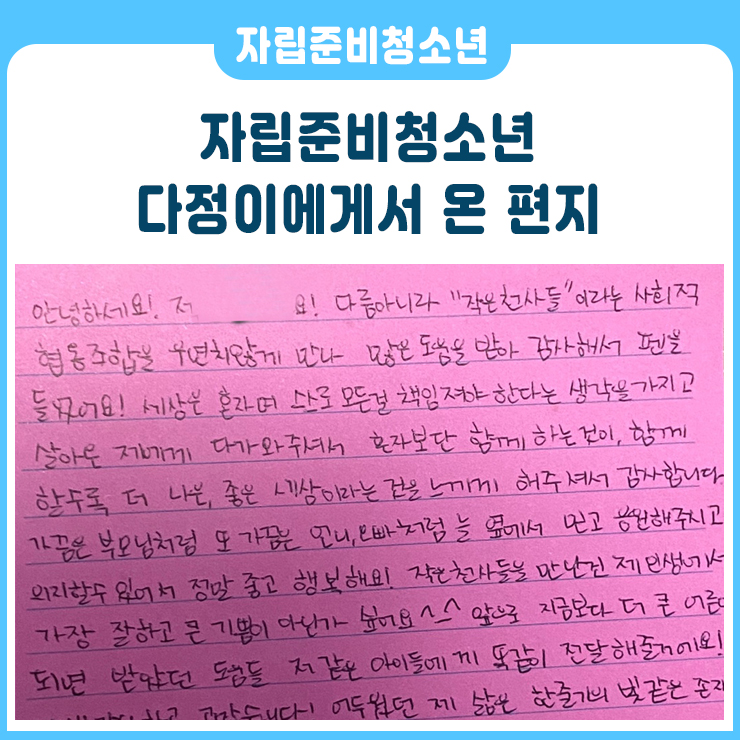 자립준비청소년
자립준비청소년
다정이에게서 온 편지
안녕하세요! 저 요! 다름아니라 "작은천사들"이라는 사회적
협동조합을 우연치않게 만나 많은 도움을 받아 감사해서 펜을
들었어요! 세상은 혼자며 스스로 모든걸 책임져야 한다는 생각을 가지고
살아온 제에게 다가와주셔서 혼자보단 함께 하는것이, 함께
할수록 더 나은, 좋은 세상이라는 걸 느끼게 해주셔서 감사합니다
가끔은 부모님처럼 또 가끔은 언니,오빠처럼 늘 옆에서 믿고 응원해주시고
의지할수 있어서 정말 좋고 행복해요! 작은천사들을 만난건 제 인생에서
가장 잘하고 큰 기쁨이 아닌가 싶어요^^ 앞으로 지금보다 더 큰 어른이
되면 받았던 도움들 저같은 아이들에게 똑같이 전달해줄거에요!
어두웠던 제 삶은 한줄기의 빛같은 존재